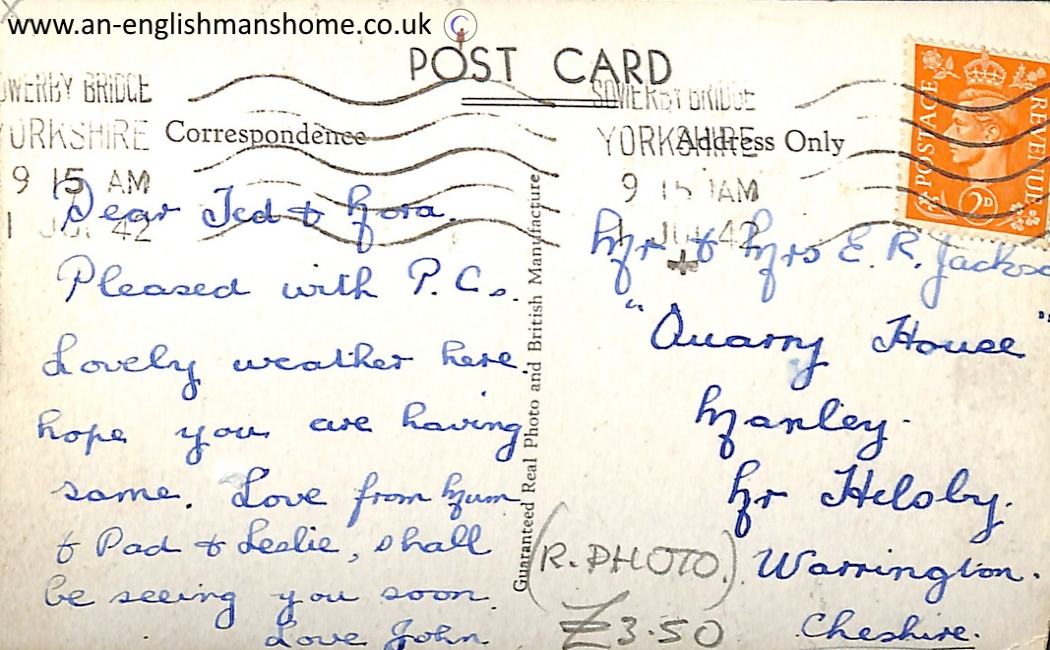 www.an-englishmanshome.co.uk
POST CARD
SOWERBY BRIDGE
YORKSHIRE
9 15 AM
1 JUL 42
SOWERBY BRIDGE
YORKSHIRE
9 15 AM
1 JUL 42
POSTAGE
REVENUE
2D
Correspondence
Address Only
Dear Ted & Nora.
Pleased with P.Cs.
Lovely weather here.
hope you are having
same. Love from Mum
& Dad & Leslie, shall
be seeing you soon.
Love John.
Guaranteed Real Photo and British Manufacture
Mr & Mrs E. R. Jackso
"Quarry House"
Manley.
Nr Helsby.
Warrington.
Cheshire.
(R. PHOTO)
£3.50